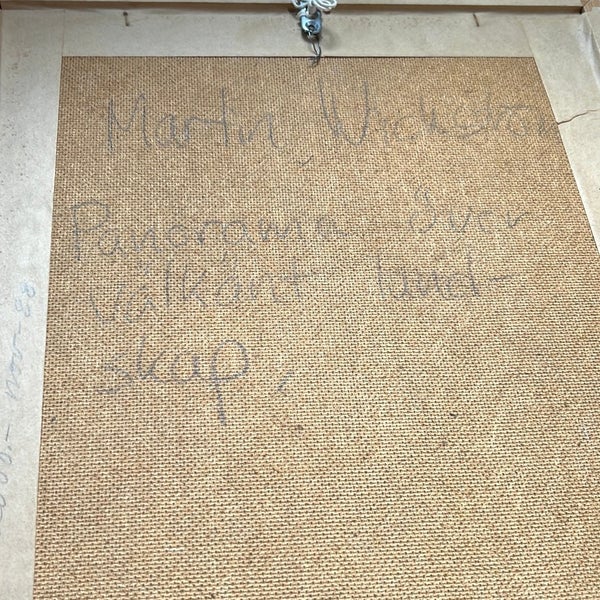 Martin Wickström
Panorama över
välkänt land-
skap.
nov -88